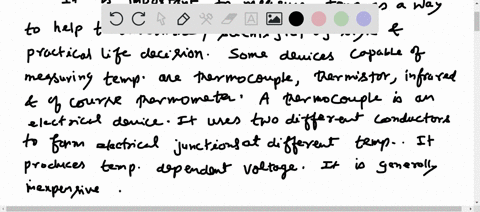 It is important to measure temp. as a way
to help to
practical life decision. Some devices capable of
measuring temp. are thermocouple, thermistor, infrared
& of course thermometer. A thermocouple is an
electrical device. It uses two different conductors
to form electrical junctions at different temp.. It
produces temp. dependent voltage. It is generally
inexpensive .